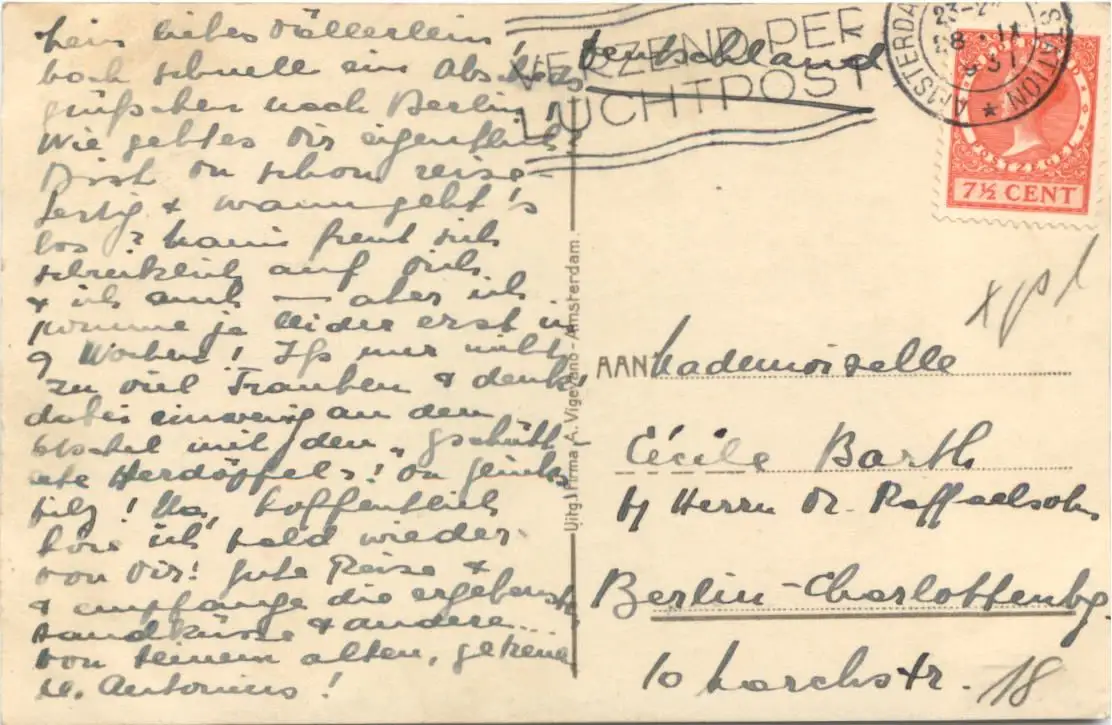 Mein liebes
noch schnell ein Abschieds
grüßchen nach Berlin!
Wie geht es Dir eigentlich
Bist Du schon reise-
fertig & wann geht's
los? freut sich
schrecklich auf Dich
& ich auch — aber ich
komme ja leider erst in
9 Wochen! Iß mer nicht
zu viel Trauben & denk,
dabei ein wenig an den
mit den „gschütt
ete Herdöpfel"! Du Glücks
pilz! Na, hoffentlich
höre ich bald wieder
von Dir! Gute Reise &
& empfange die ergebenst
Handküsse & andere...
von Deinem alten, getreuen
M. Antonius!
Deutschland
VERZEND PER
LUCHTPOST
AMSTERDAM STATION
7½ CENT
POSTZEGEL
Uitg. Firma A. Vigevano - Amsterdam.
AAN Mademoiselle
Cécile Barth
b/ Herrn Dr. Raffaelsohn
Berlin-Charlottenbg.
10
18